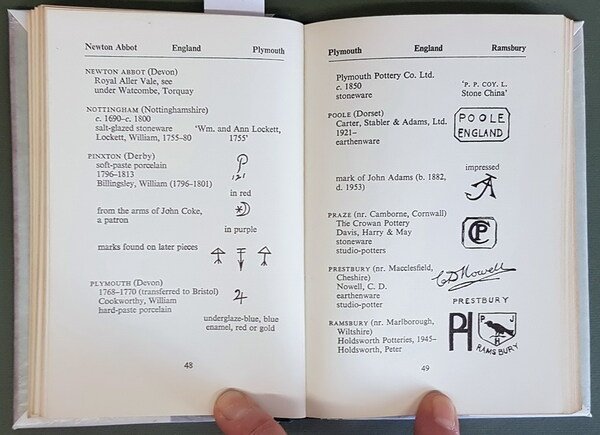 Newton Abbot England Plymouth
NEWTON ABBOT (Devon)
Royal Aller Vale, see
under Watcombe, Torquay
NOTTINGHAM (Nottinghamshire)
c. 1690–c. 1800
salt-glazed stoneware 'Wm. and Ann Lockett,
Lockett, William, 1755–80 1755'
PINXTON (Derby)
soft-paste porcelain
1796–1813
Billingsley, William (1796–1801)
P
121
in red
from the arms of John Coke,
a patron
in purple
marks found on later pieces
PLYMOUTH (Devon)
1768–1770 (transferred to Bristol)
Cookworthy, William
hard-paste porcelain
underglaze-blue, blue
enamel, red or gold
48
Plymouth England Ramsbury
Plymouth Pottery Co. Ltd.
c. 1850
stoneware
'P. P. COY. L.
Stone China'
POOLE (Dorset)
Carter, Stabler & Adams, Ltd.
1921–
earthenware
POOLE
ENGLAND
impressed
mark of John Adams (b. 1882,
d. 1953)
JA
PRAZE (nr. Camborne, Cornwall)
The Crowan Pottery
Davis, Harry & May
stoneware
studio-potters
CP
PRESTBURY (nr. Macclesfield,
Cheshire)
Nowell, C. D.
earthenware
studio-potter
C D Nowell
PRESTBURY
RAMSBURY (nr. Marlborough,
Wiltshire)
Holdsworth Potteries, 1945–
Holdsworth, Peter
PH
P J
H
RAMSBURY
49